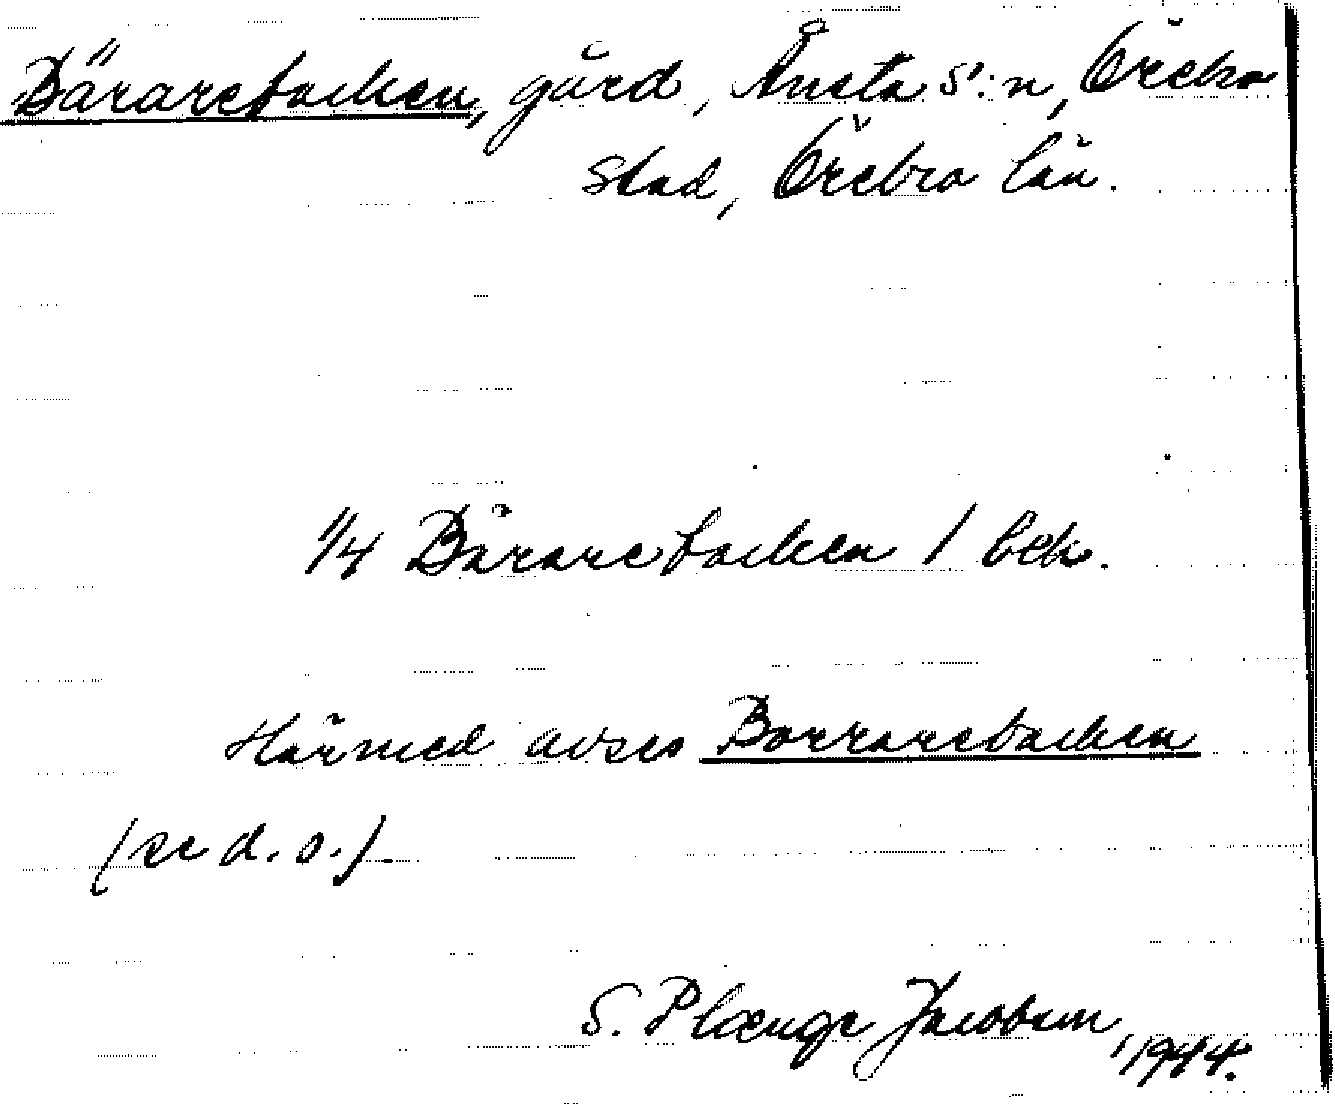 Bärarebacken, gård, Ånsta s:n, Örebro
stad, Örebro län.
1/4 Bärarebacken 1 bek.
Härmed avses Borrarebacken
(se d. o.).
S. Plænge Jacobson, 1944.